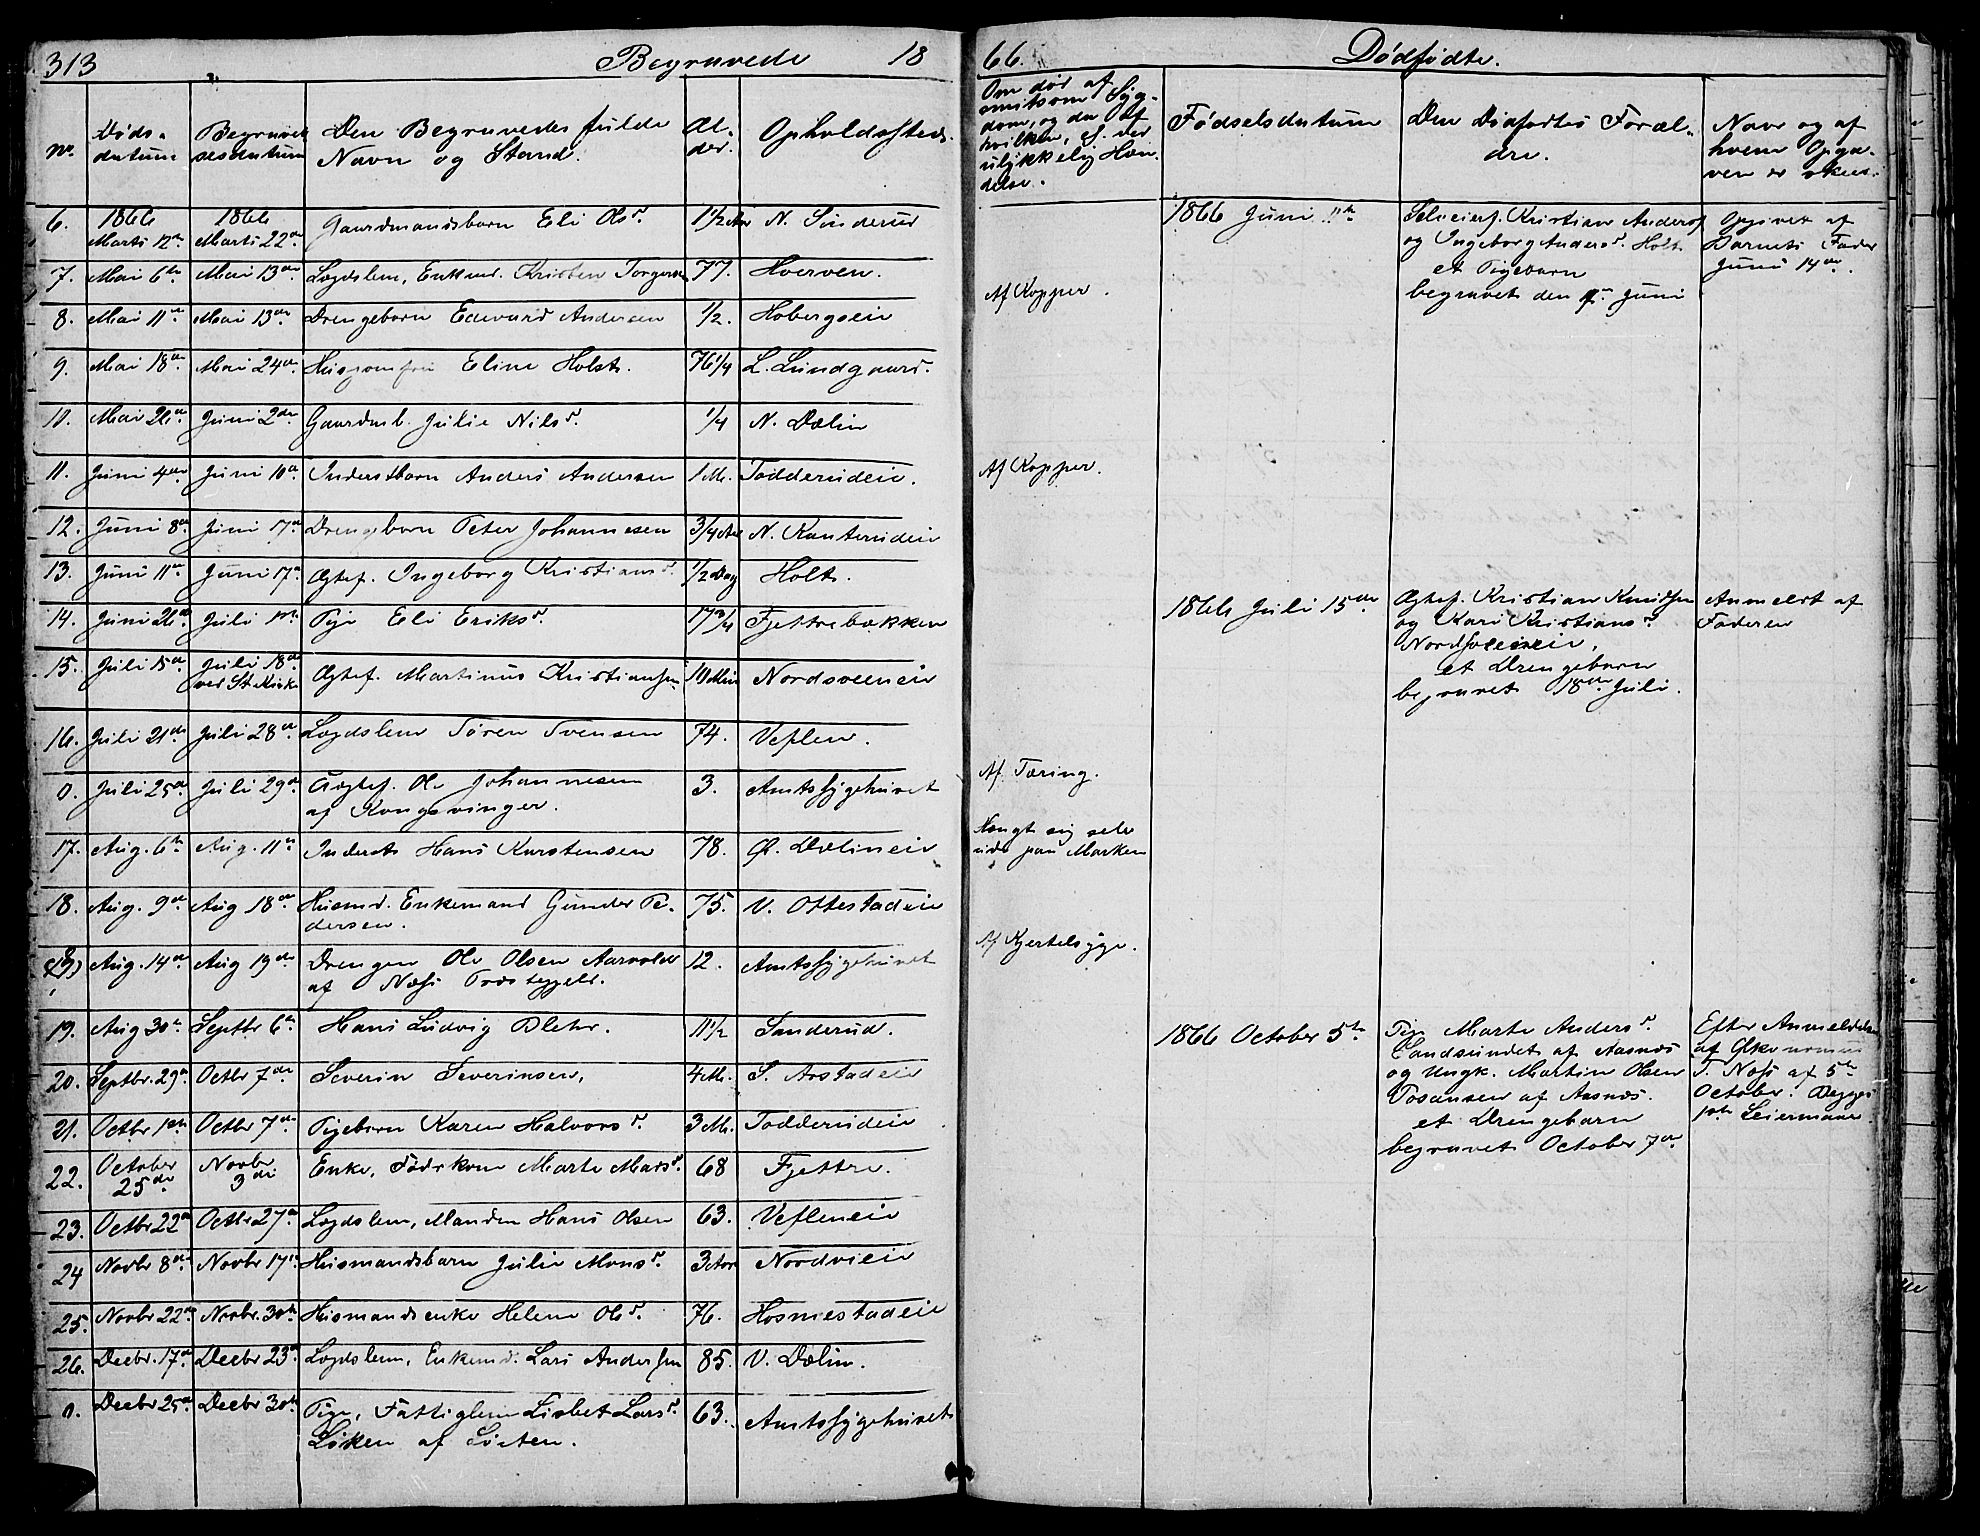 313 Begravede 18
No. Døds-datum Begravelsesdatum Den Begravedes fulde Navn og Stand. Alder. Opholdssted.
6. 1866 Marts 12te 1866 Marts 22de Gaardmandsbarn Eli Olsd. 1 1/2 Aar N. Sinderud
7. Mai 6te Mai 13de Lægdslem, Enkmd. Kristen Torgersen 77. Hverven.
8. Mai 11te Mai 13de Drengebarn Edevard Andersen 1/2. Hobergseie
9. Mai 18de Mai 24de Husjomfru Eline Holst. 76 1/4 L. Lundgaard.
10. Mai 26de Juni 2den Gaardmb. Julie Nilsd. 1/4 N. Dælin
11. Juni 4de Juni 10de Inderstbarn Anders Andersen 1 M. Tadderudeie.
12. Juni 8de Juni 17de Drengebarn Peter Johannesen 3/4 Aar N. Kanterudeie
13. Juni 11te Juni 17de Ægtef. Ingeborg Kristiansd. 1/2 Dag Holt.
14. Juni 26de Juli 1ste Pige Eli Eriksd. 17 3/4 Fjettrebakken
15. Juli 15de Juli 18de ved St Kirke Ægtef. Martinus Kristiansen 10 Min Nordsveeneie
16. Juli 21de Juli 28de Lægdslem Søren Svensen 74. Veflen.
0. Juli 25de Juli 29de Uægtef. Ole Johannesen
af Kongsvinger. 3. Amtssygehuset
17. Aug. 6te Aug. 11te Inderst Hans Karstensen 78. Ø. Dælineie
18. Aug. 9de Aug 18de Husmd. Enkemand Gunder Pe-
dersen. 75. V. Ottestadeie
Aug. 14de Aug 19de Drengen Ole Olsen Aarvolden
af Næs Præstegjeld. 12. Amtssygehuset
19. Aug 30te Septbr 6te Hans Ludvig Blehr. 11 1/2 Sinderud.
20. Septbr. 29de Octbr 7de Severin Severinsen, 4 M. S. Arstadeie
21. Octbr 1ste Octbr 7de Pigebarn Karen Halvorsd. 3 M. Tadderudeie
22. October 25de Novbr 3die Enke, Føderkone Marte Madsd. 68 Fjettre.
23. Octbr 22de Octbr 27de Lægdslem, Manden Hans Olsen 63. Vefleneie
24 Novbr 8de Novbr 17de Husmandsbarn Julie Monsd. 3 Aar Nordvieie
25. Novbr 22de Novbr. 30te Husmandsenke Helene Olsd. 76. Hosmestadeie
26. Decbr. 17de Decbr 23de Lægdslem, Enkemd. Lars Andersen 85. V. Dælin.
0. Decbr 25de Decbr 30te Pige, Fattiglem Lisbet Larsd.
Løken af Løiten. 63. Amtssygehuset
66. Dødfødte.
Om død af
smitsom Syg-
dom, og da af
hvilken, el. ved
ulykkelig Hæn-
delse.
Fødselsdatum
Den Dødfødtes Foræl-
dre.
Naar og af
hvem Opga-
ven er skeet.
Af Kopper.
Af Kopper.
Af Tæring.
Hængt sig selv
ude paa Marken
Af Kjertelsyge.
1866 Juni 11te
Selveierf. Kristian Anders
og Ingeborg Andersd. Holt
et Pigebarn
begravet den Juni
Opgivet af
Barnets Fader
Juni 14de.
1866 Juli 15de
Ægtef. Kristian Knudsen
og Kari Kristiansd.
Nordsveeneie,
et Drengebarn
begravet 18de Juli.
Anmeldt af
Faderen
1866 October 5te
Pige Marte Andersd.
Sandsundet af Aasnæs
og Ungk. Martin Olsen
Tosansen af Aasnæs.
et Drengebarn
begravet October 7de
Efter Anmeldelse
af
T. Næss af 5te
October. Begges
1ste Leiermaal